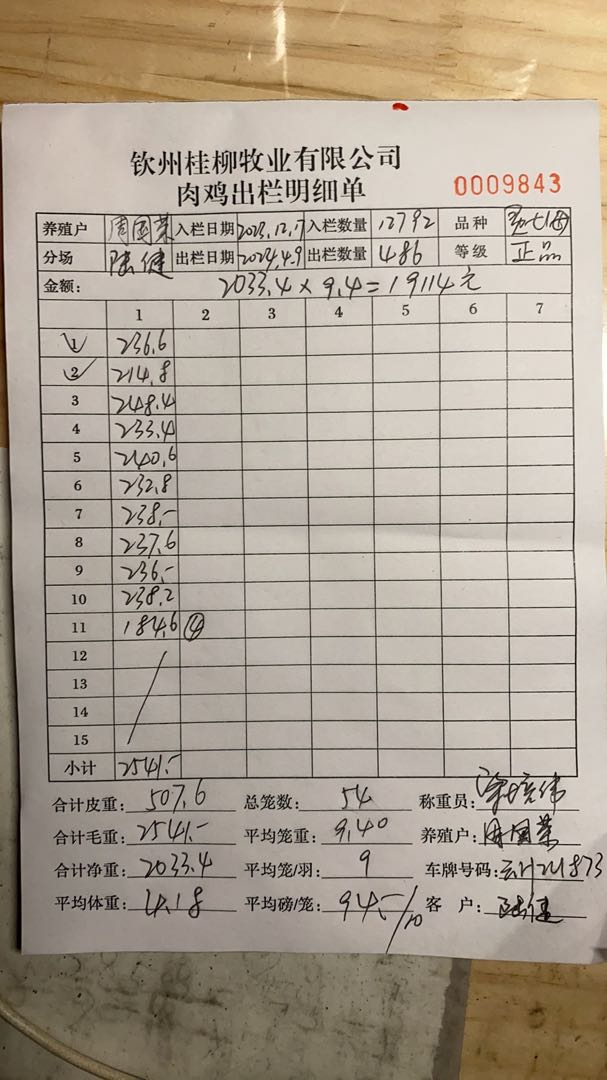 钦州桂柳牧业有限公司
肉鸡出栏明细单
0009843
养殖户 周国荣 入栏日期 2023.12.17 入栏数量 12792 品种
分场 陆健 出栏日期 2024.4.9 出栏数量 486 等级 正品
金额: 2033.4 × 9.4 = 19114元
1 2 3 4 5 6 7
1 236.6
2 214.8
3 248.4
4 233.4
5 240.6
6 232.8
7 238.-
8 237.6
9 236.-
10 238.2
11 184.6 ④
12
13
14
15
小计 2541.-
合计皮重: 507.6 总笼数: 54 称重员:
合计毛重: 2541.- 平均笼重: 9.40 养殖户: 周国荣
合计净重: 2033.4 平均笼/羽: 9 车牌号码:
平均体重: 4.18 平均磅/笼: 94.-/10 客 户: 陆健